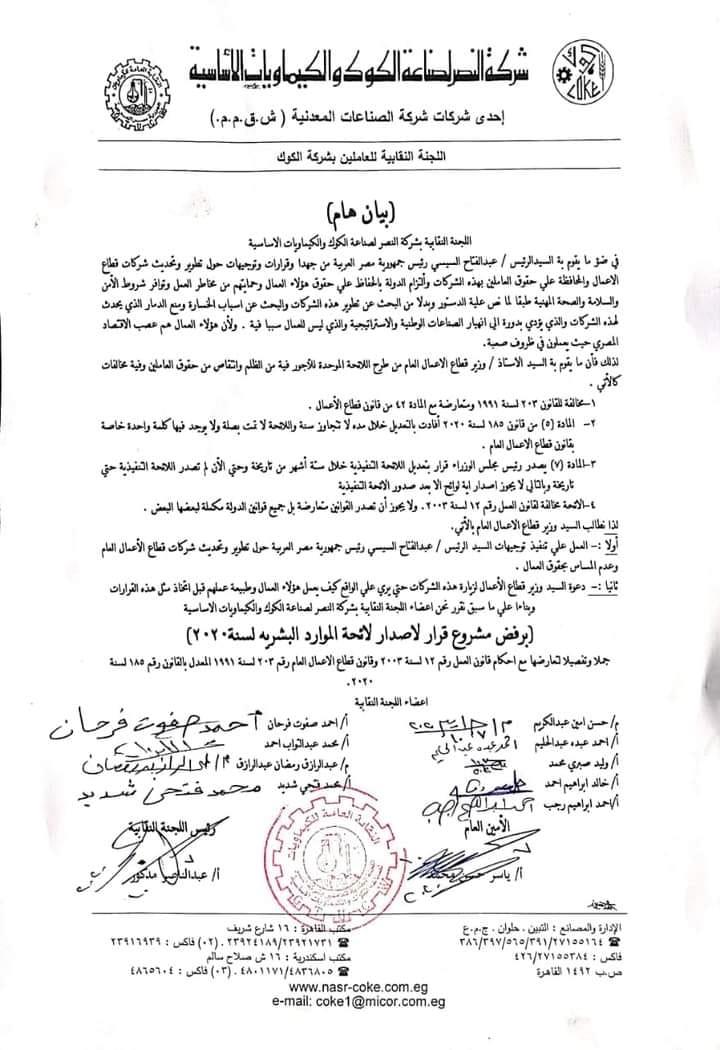 شركة النصر لصناعة الكوك والكيماويات الأساسية
COKE
إحدى شركات شركة الصناعات المعدنية ( ش.ق.م.م.)
اللجنة النقابية للعاملين بشركة الكوك
(بيان هام)
اللجنة النقابية بشركة النصر لصناعة الكوك والكيماويات الاساسية
في ضؤ ما يقوم بة السيدالرئيس / عبدالفتاح السيسي رئيس جمهورية مصر العربية من جهدا وقرارات وتوجيهات حول تطوير وتحديث شركات قطاع
الاعمال والحافظة علي حقوق العاملين بهذه الشركات وألتزام الدولة بالحفاظ علي حقوق هؤلاء العمال وحمايتهم من مخاطر العمل وتوافر شروط الأمن
والسلامة والصحة المهنية طبقا لما نص علية الدستور وبدلا من البحث عن تطوير هذه الشركات والبحث عن اسباب الخسارة ومنع الدمار الذي يحدث
لهذه الشركات والذي يؤدي بدورة الى انهيار الصناعات الوطنية والاستراتيجية والذي ليس للعمال سببا فية . ولأن هؤلاء العمال هم عصب الاقتصاد
المصري حيث يعملون في ظروف صعبة.
لذلك فأن ما يقوم بة السيد الاستاذ / وزير قطاع الاعمال العام من طرح اللائحة الموحدة للأجور فية من الظلم وانتقاص من حقوق العاملين وفية مخالفات
كالأتي .
١-مخالفة للقانون ٢٠٣ لسنة ١٩٩١ ومتعارضة مع المادة ٤٢ من قانون قطاع الأعمال .
٢- المادة (٥) من قانون ١٨٥ لسنة ٢٠٢٠ أفادت بالتعديل خلال مده لا تتجاوز سنة واللائحة لا تمت بصلة ولا يوجد فيها كلمة واحدة خاصة
بقانون قطاع الاعمال العام .
٣-المادة (٧) يصدر رئيس مجلس الوزراء قرار بتعديل اللائحة التنفيذية خلال ستة أشهر من تاريخة وحتي الأن لم تصدر اللائحة التنفيذية حتي
تاريخة وبالتالي لا يجوز اصدار اية لوائح الا بعد صدور الائحة التنفيذية
٤-الائحة مخالفة لقانون العمل رقم ١٢ لسنة ٢٠٠٣ . ولا يجوز أن تصدر القوانين متعارضة بل جميع قوانين الدولة مكملة لبعضها البعض .
لذا نطالب السيد وزير قطاع الاعمال العام بالأتي.
أولا :- العمل علي تنفيذ توجيهات السيد الرئيس / عبدالفتاح السيسي رئيس جمهورية مصر العربية حول تطوير وتحديث شركات قطاع الأعمال العام
وعدم المساس بحقوق العمال .
ثانيا :- دعوة السيد وزير قطاع الأعمال لزيارة هذه الشركات حتي يري علي الواقع كيف يعمل هؤلاء العمال وطبيعة عملهم قبل اتخاذ مثل هذه القرارات
وبناءا علي ما سبق نقرر نحن اعضاء اللجنة النقابية بشركة النصر لصناعة الكوك والكيماويات الاساسية
(برفض مشروع قرار لاصدار لائحة الموارد البشريه لسنة٢٠٢٠)
جملا وتفصيلا لتعارضها مع احكام قانون العمل رقم ١٢ لسنة ٢٠٠٣ وقانون قطاع الاعمال العام رقم ٢٠٣ لسنة ١٩٩١ المعدل بالقانون رقم ١٨٥ لسنة
٢٠٢٠.
اعضاء اللجنة النقابية
م/ حسن امين عبدالكريم
أ/ احمد صفوت فرحان أحمد صفوت فرحان
أ/ احمد عبده عبدالحليم
أ/ محمد عبدالتواب احمد
أ/ وليد صبري محمد
م/ عبدالرازق رمضان عبدالرازق
أ/ خالد ابراهيم احمد
أ/ محمد فتحي شديد محمد فتحى شديد
أ/احمد ابراهيم رجب
الأمين العام
رئيس اللجنة النقابية
أ/ ياسر
أ/ عبدالناصر مدكور
النقابة العامة للكيماويات
الإدارة والمصانع : التبين . حلوان . ج.م.ع
☎ ٣٨٦/٣٩٧/٥٦٥/٣٩١/٢٧١٥٥١٦٤
فاكس : ٤٢٦/٢٧١٥٥٣٨٤
ص.ب ١٤٩٢ القاهرة
مكتب القاهرة : ١٦ شارع شريف
☎ ٢٣٩٢٤١٨٩/٢٣٩٢١٧٣١ . (٠٢) فاكس : ٢٣٩١٦٩٣٩
مكتب اسكندرية : ١٦ ش صلاح سالم
☎ ٤٨٠١١٧١/٤٨٣٦٨٠٥ . (٠٣) فاكس : ٤٨٦٥٦٠٤
www.nasr-coke.com.eg
e-mail: coke1@micor.com.eg